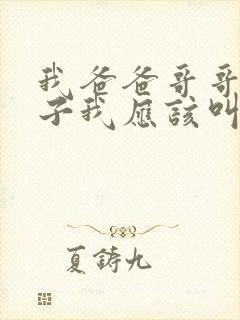 我爸爸哥哥
子我應該叫
夏鑄九